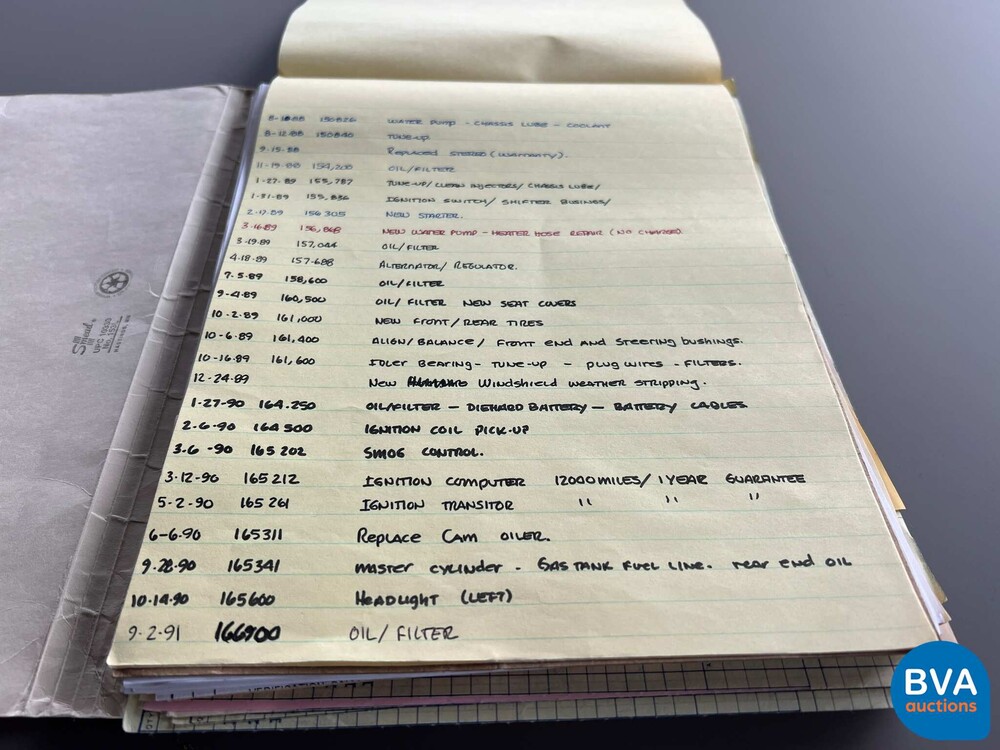 8-12-88 150840 TUNE-UP
9-15-88 REPLACED STEREO (WARRANTY).
11-19-88 154,200 OIL/FILTER
1-27-89 155,757 TUNE-UP/CLEAN INJECTORS/CHASSIS LUBE/
1-31-89 155,836 IGNITION SWITCH/SHIFTER BUSINGS/
2-17-89 156305 NEW STARTER.
3-16-89 156,868 NEW WATER PUMP - HEATER HOSE REPAIR (NO CHARGE).
3-19-89 157,044 OIL/FILTER
4-18-89 157-688 ALTERNATOR/REGULATOR.
7-5-89 158,600 OIL/FILTER
9-4-89 160,500 OIL/FILTER NEW SEAT COVERS
10-2-89 161,000 NEW FRONT/REAR TIRES
10-6-89 161,400 ALIGN/BALANCE/ FRONT END AND STEERING BUSHINGS.
10-16-89 161,600 IDLER BEARING - TUNE-UP - PLUG WIRES - FILTERS.
12-24-89 NEW WINDSHIELD WEATHER STRIPPING.
1-27-90 164.250 OIL/FILTER - DIEHARD BATTERY - BATTERY CABLES
2-6-90 164500 IGNITION COIL PICK-UP
3-6-90 165202 SMOG CONTROL.
3-12-90 165212 IGNITION COMPUTER 12000 MILES/1 YEAR GUARANTEE
5-2-90 165261 IGNITION TRANSITOR " " "
6-6-90 165311 REPLACE CAM OILER.
9-28-90 165341 MASTER CYLINDER - GAS TANK FUEL LINE. REAR END OIL
10-14-90 165600 HEADLIGHT (LEFT)
9-2-91 166900 OIL/FILTER
WATER PUMP - CHASSIS LUBE - COOLANT
Smead's
UPC 10330
HASTINGS, MN
BVA
auctions